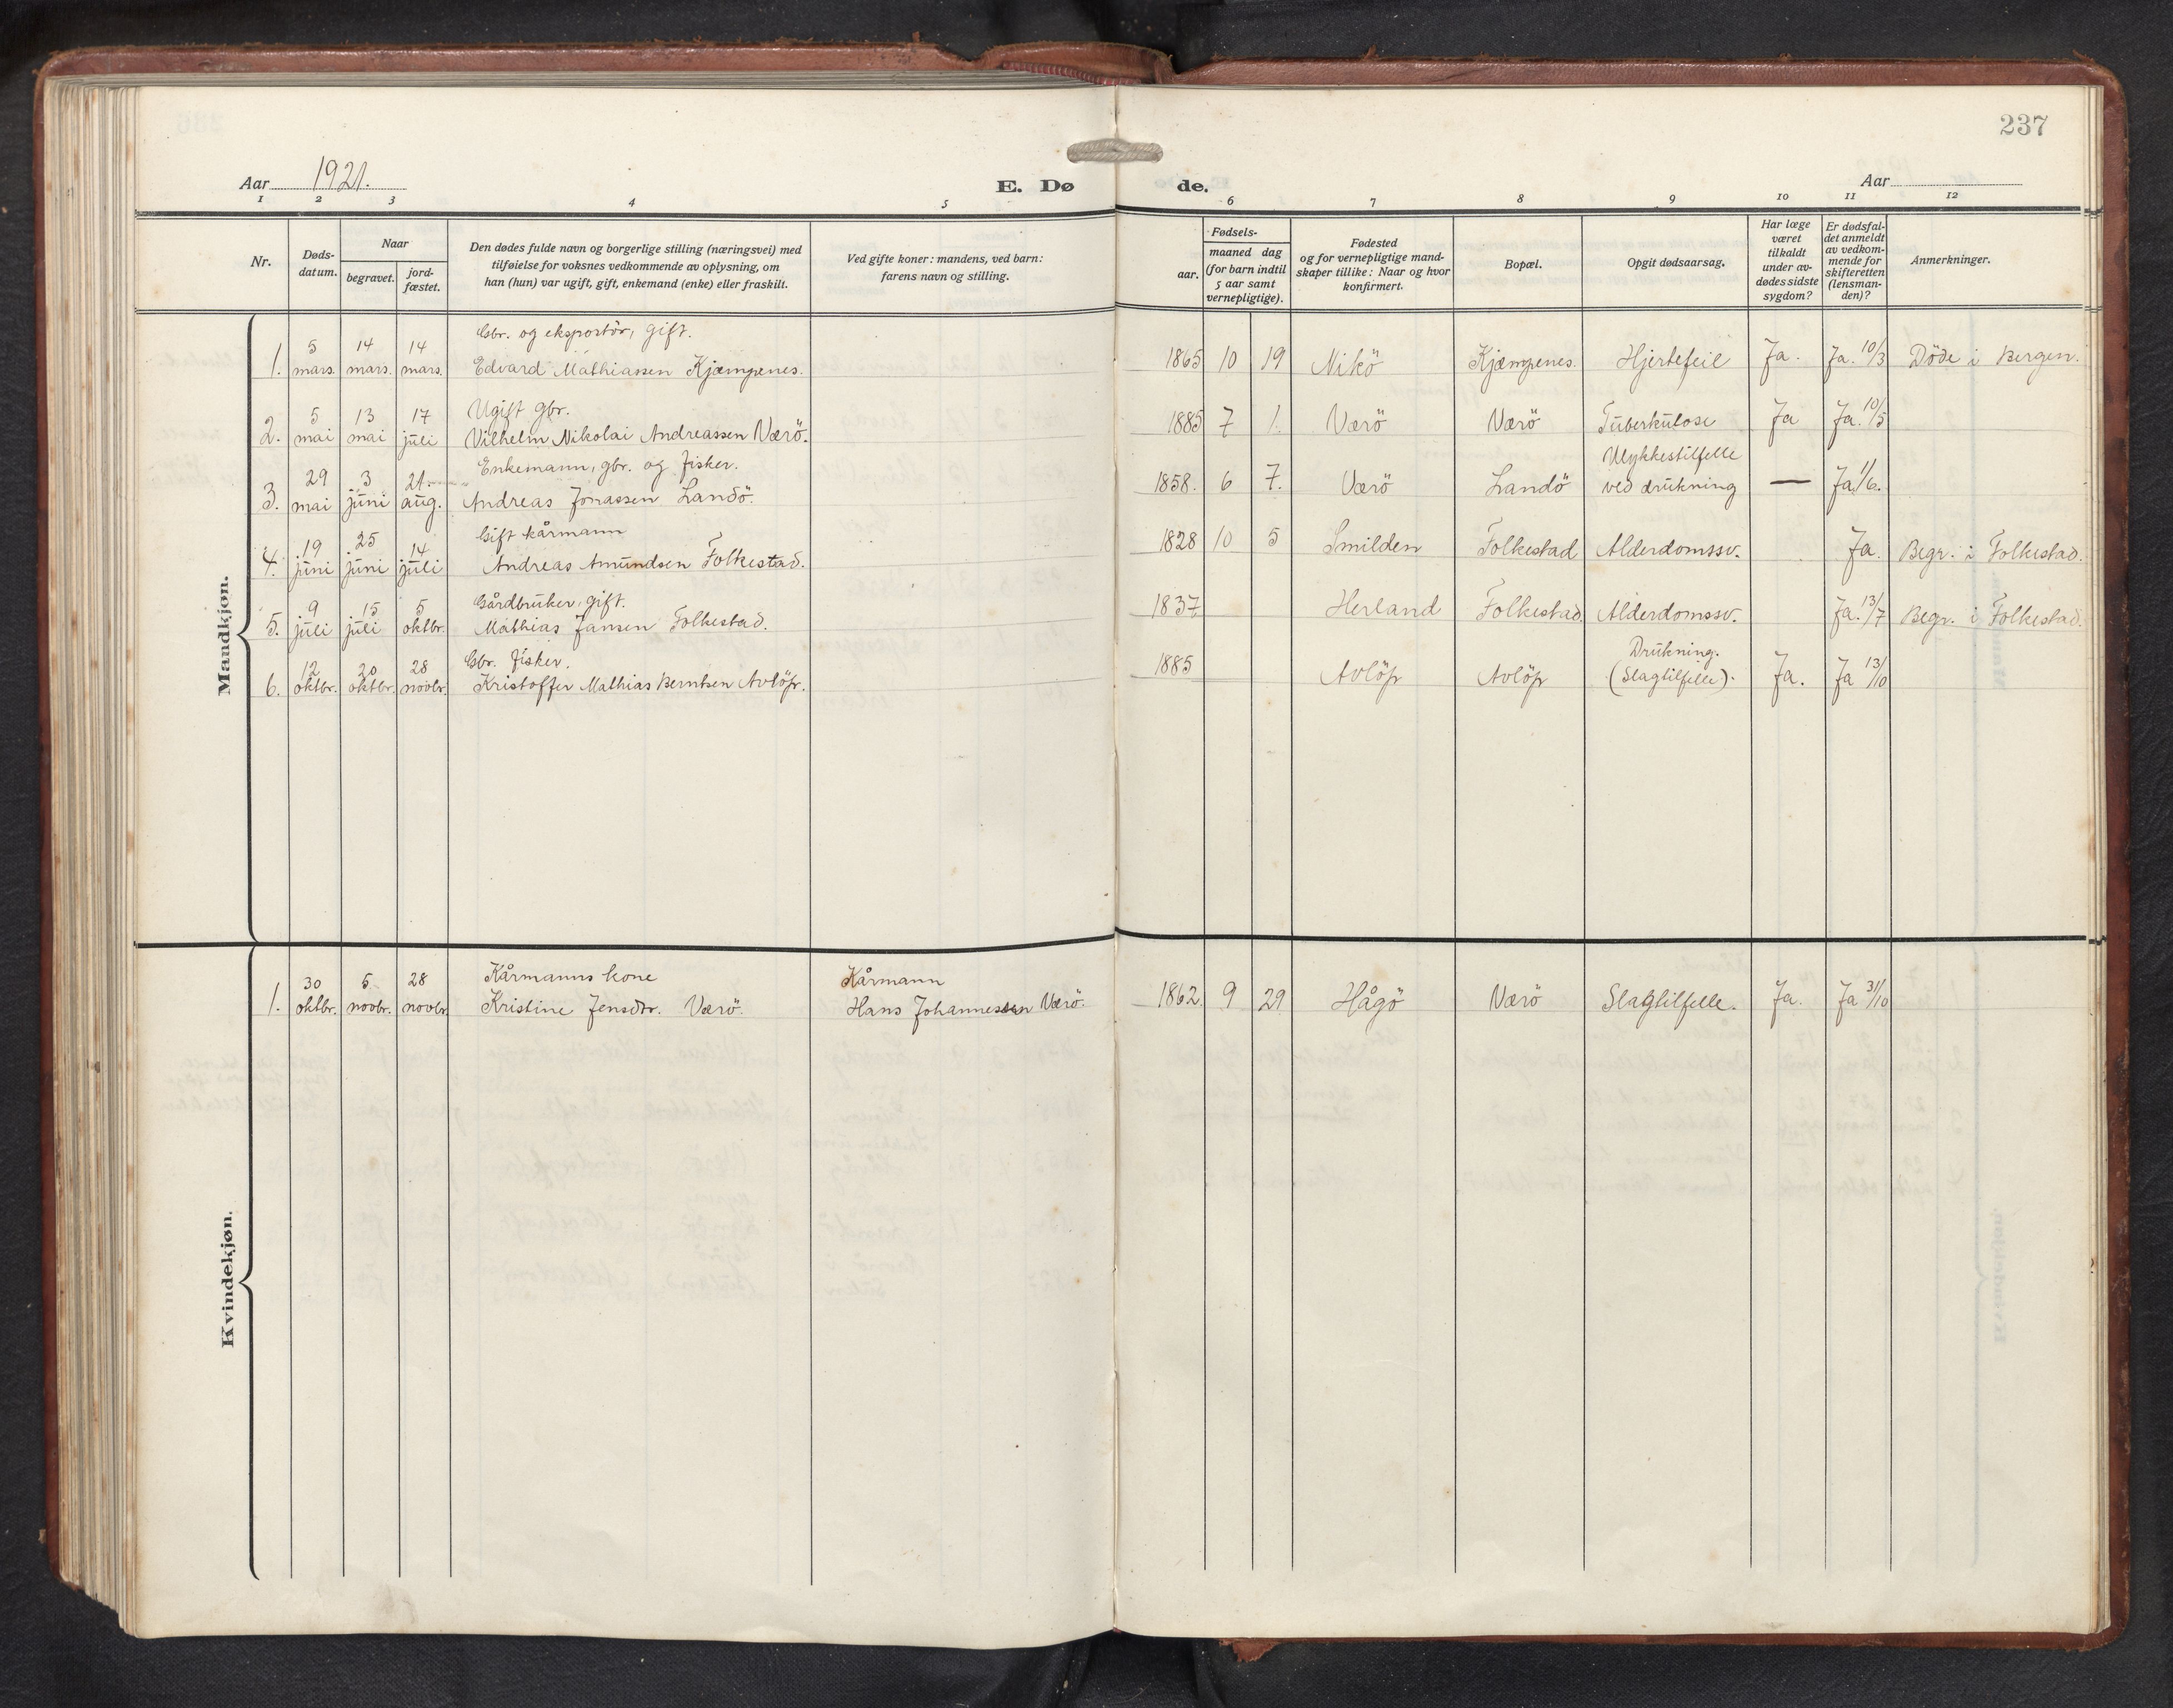 237
Aar 1921.
E. Dø
de.
Aar
1 2 3 4 5 6 7 8 9 10 11 12
Nr.
Døds-
datum.
Naar
begravet.
jord-
fæstet.
Den dødes fulde navn og borgerlige stilling (næringsvei) med
tilføielse for voksnes vedkommende av oplysning, om
han (hun) var ugift, gift, enkemand (enke) eller fraskilt.
Ved gifte koner: mandens, ved barn:
farens navn og stilling.
Fødsels-
aar.
maaned dag
(for barn indtil
5 aar samt
vernepligtige).
Fødested
og for vernepligtige mand-
skaper tillike: Naar og hvor
konfirmert.
Bopæl.
Opgit dødsaarsag.
Har læge
været
tilkaldt
under av-
dødes sidste
sygdom?
Er dødsfal-
det anmeldt
av vedkom-
mende for
skifteretten
(lensman-
den)?
Anmerkninger.
Mandkjøn.
5 14 14 Gbr. og eksportör, gift.
1. mars. mars. mars. Edvard Mathiassen Kjæmpenes. 1865 10 19 Nikö Kjæmpenes. Hjertefeil Ja. Ja. 10/3 Döde i Bergen.
5 13 17 Ugift gbr.
2. mai mai juli Vilhelm Nikolai Andreassen Værö. 1885 7 1. Værö Værö Tuberkulose Ja Ja. 10/5
29 3 21. Enkemann, gbr. og fisker. Ulykkestilfelle
3. mai juni aug. Andreas Jonassen Landö. 1858. 6 7. Værö Landö ved drukning — Ja 1/6.
19 25 14 Gift kårmann
4. juni juni juli Andreas Amundsen Folkestad. 1828 10 5 Smilden Folkestad Alderdomssv. Ja. Begr. i Folkestad.
9 15 5 Gårdbruker, gift.
5. juli juli oktbr. Mathias Jansen Folkestad. 1837 Herland Folkestad. Alderdomssv. Ja. 13/7 Begr. i Folkestad.
12 20 28 Gbr. fisker. Drukning.
6. oktbr. oktbr. novbr. Kristoffer Mathias Berntsen Avlöp. 1885 Avlöp Avlöp (Slagtilfelle). Ja. Ja 13/10
Kvindekjøn.
30 5 28 Kårmanns kone Kårmann
1. oktbr. novbr. novbr. Kristine Jensdtr. Værö. Hans Johannessen Værö. 1862. 9 29 Hågö Værö Slagtilfelle. Ja. Ja 31/10